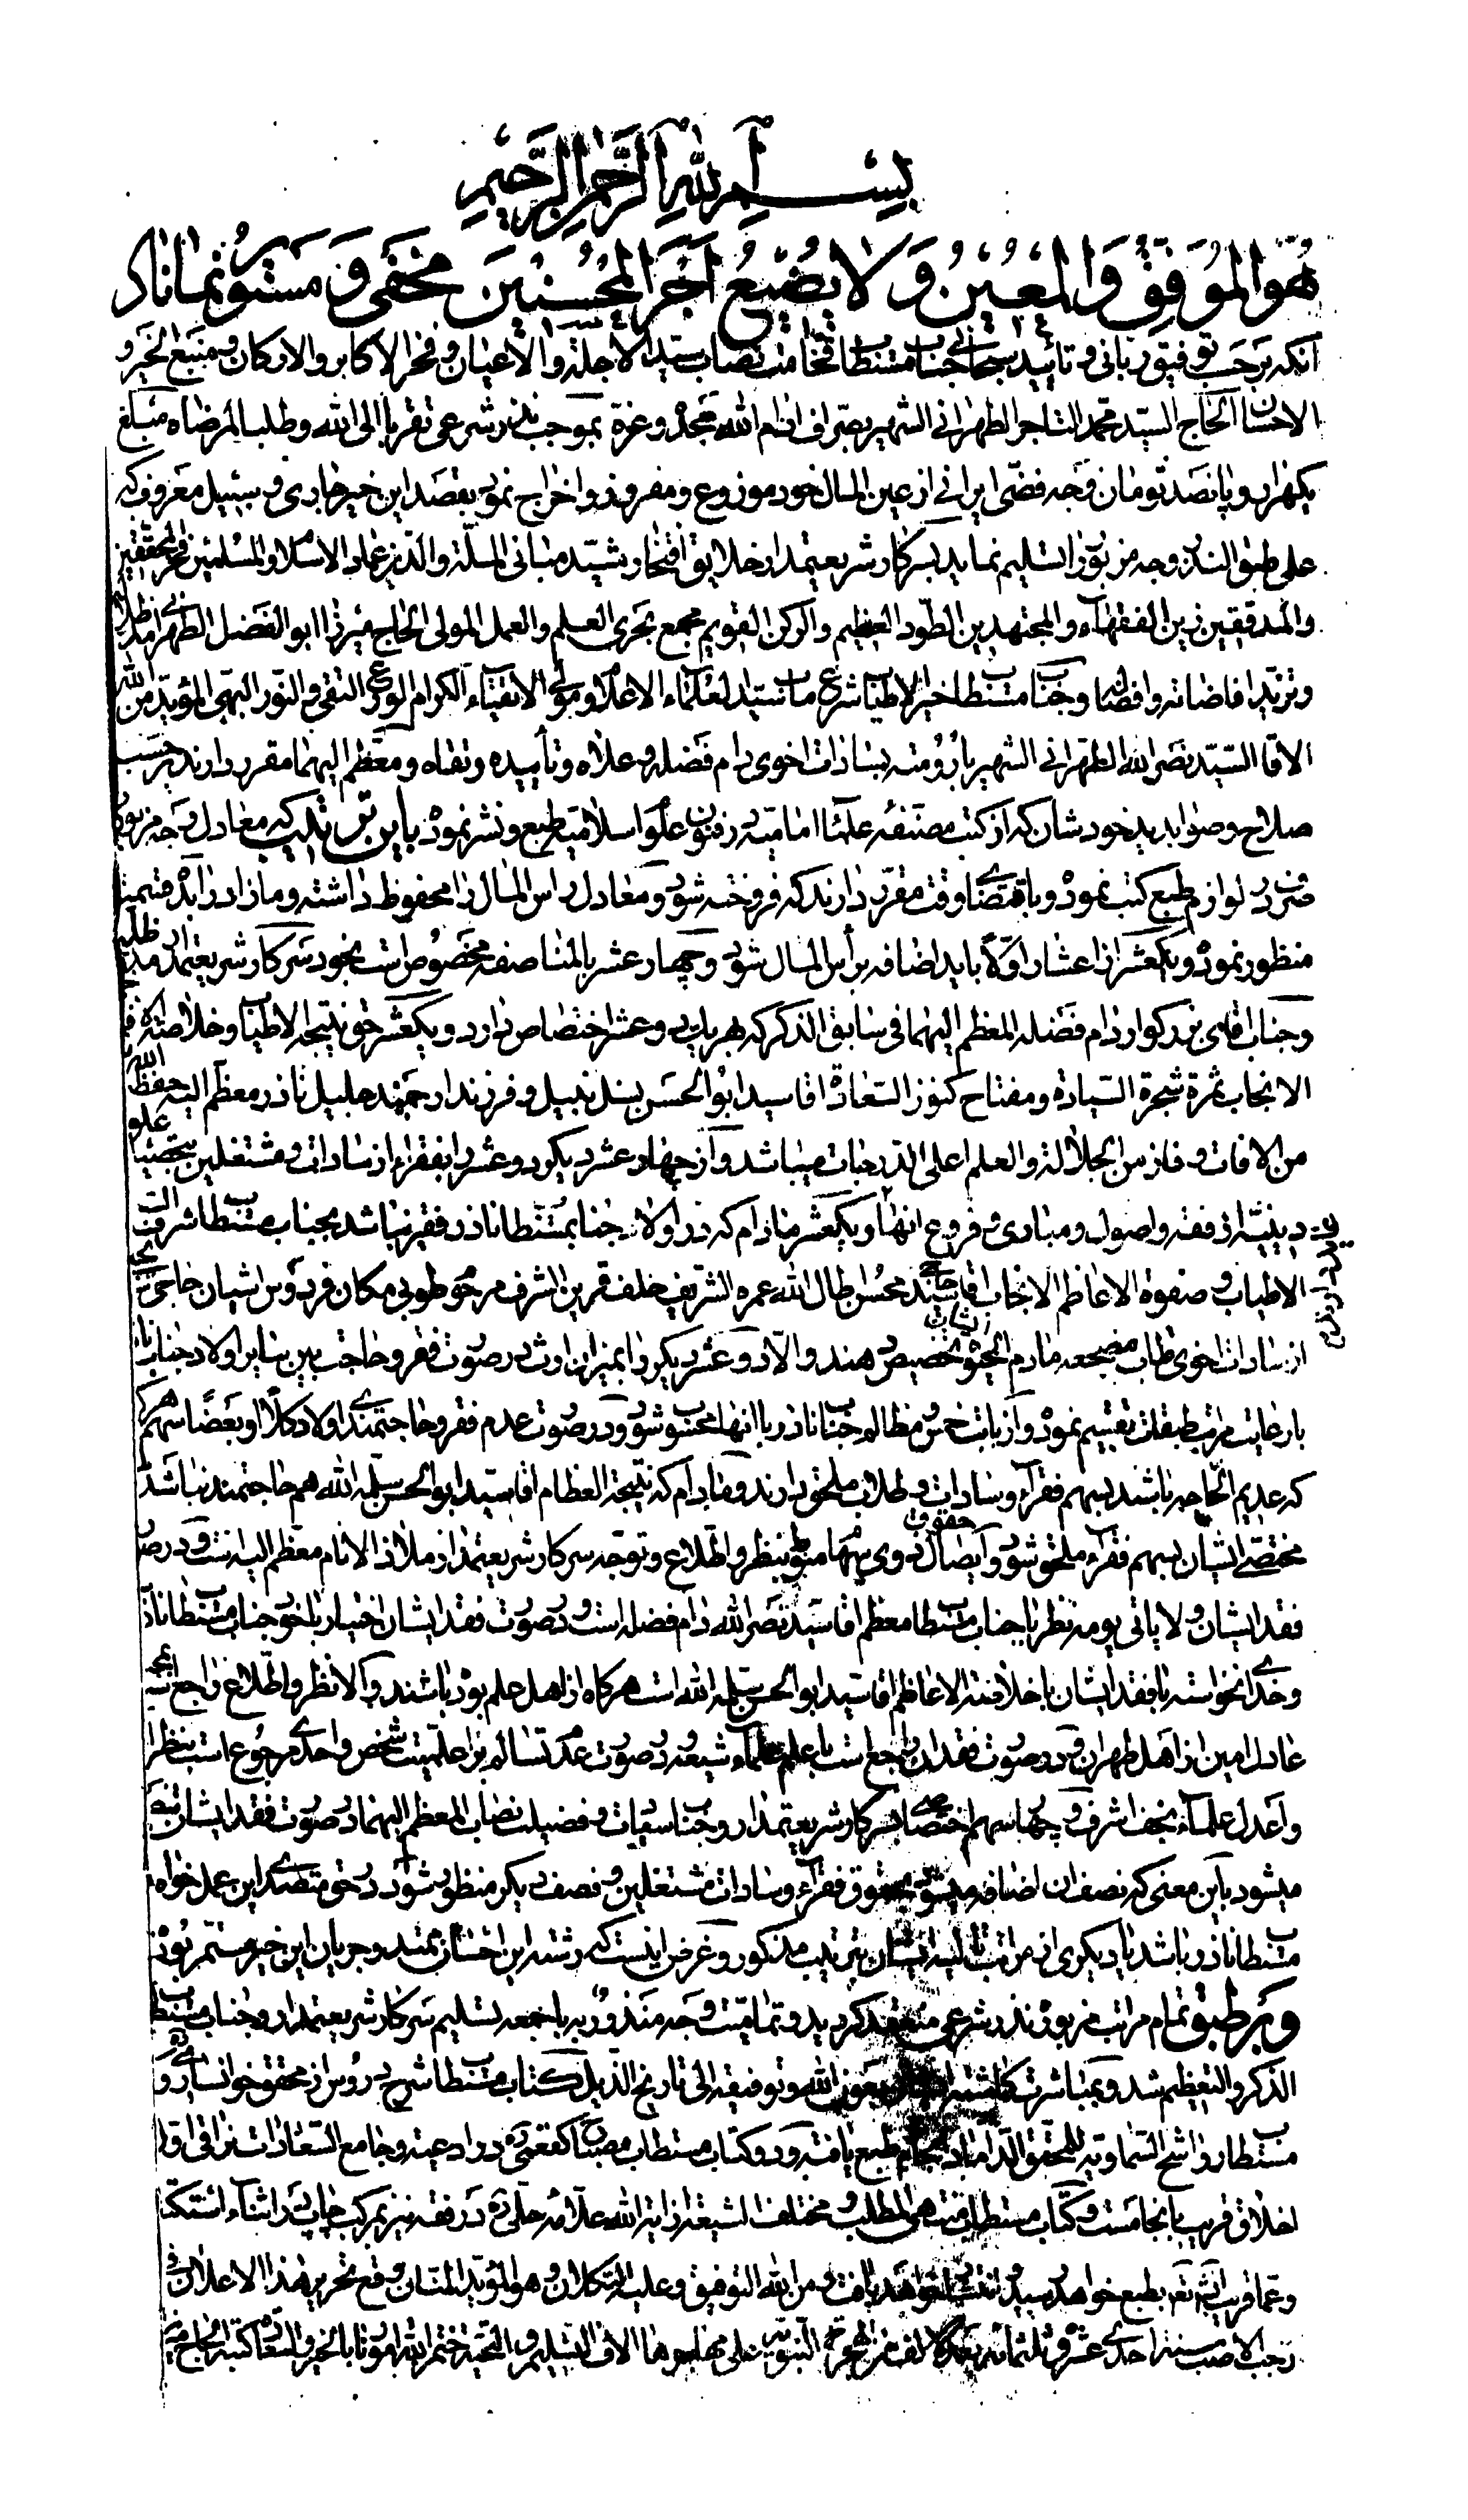 بسم الله الرحمن الرحیم
هو الموفق والمعین و لا یضیع اجر المحسنین مخفی و مستور نماناد
آنکه بر حسب توفیق ربانی و تایید سبحانی جناب مستطاب فخامت نصاب سید الاجلة والاعیان و فخر الاکابر والارکان و منبع الخیر و
الاحسان الحاج السید محمد التاجر الطهرانی الشهیر بصراف ادام الله مجده وعزه بموجب نذر شرعی تقربا الی الله وطلبا لمرضاه مبلغ
یکهزار و پانصد تومان وجه فضی ایرانی از عین المال خود موزوع و مفروز و اخراج نمود بقصد این خیر جاری و سبیل معروف که
علی طبق النذر وجه مزبور را تسلیم نماید بسرکار شریعتمدار خلایق افتخار مشید مبانی الملة والدین عماد الاسلام والمسلمین فخر المحققین
والمدققین زین الفقهاء والمجتهدین الطود العظیم والرکن القویم مجمع بحری العلم والعمل المولی الحاج میرزا ابو الفضل الطهرانی مد ظله
وتزید افاضاته وافضاله وجناب مستطاب خیر الاطیاب شرع ماب سید العلماء الاعلام ومولی الاتقیاء الکرام الورع التقی والنور البهی المؤید من الله
الاقا السید نصر الله الطهرانی الشهیر بسادات اخوی دام فضله وعلاه وتأییده وتقاه ومعظم الیهما مقرر دارند بر حسب
صلاح وصوابدید خودشان که از کتب مصنفه علماء امامیه در فنون علوم اسلامیه طبع ونشر نموده باین ترتیب که معادل وجه مزبور
صرف در لوازم طبع کتب نموده و باقتضای وقت مقرر دارند که فروخته شود ومعادل رأس المال را محفوظ داشته ومازاد را ده قسمت
منظور نموده و یکعشر از اعشار اولا باید اضافه بر رأس المال شود و چهار عشر بالمناصفه مخصوص است بخود سرکار شریعتمدار مد ظله
وجناب اقای بزرگوار دام فضله المعظم الیهما فی سابق الذکر که بهر یک دو عشر اختصاص دارد و یکعشر حق نتیجة الاطیاب وخلاصة
الانجاب ثمرة شجرة السیادة ومفتاح کنوز السعادة اقا سید ابو الحسن نسل نبیل و فرزند ارجمند جلیل ناذر معظم الیه حفظه الله
من الافات وفاز من الجلالة والعلم اعلی الدرجات میباشد و از چهار عشر دیگر دو عشر را بفقراء از سادات و مشتغلین بتحصیل علوم
دینیه از فقه واصول ومبادی وفروع انها و یکعشر مادام که در اولاد جناب مستطاب ناذر فقیر نباشد بجناب مستطاب شرافت
الاطیاب وصفوة الاعاظم الانجاب اقا سید محسن اطال الله عمره الشریف خلف قرین الشرف مرحوم طوبی مکان فردوس اشیان حاجی
از سادات اخوی طاب مضجعه مادام الحیوة تخصیص دهند والا دو عشر دیگر را بمیزان ارث در صورت فقر وحاجت بین سایر اولاد جناب ناذر
با رعایت مراتب طبقات تقسیم نموده و از بابت خمس ومظالم جناب ناذر با انها محسوب شود و در صورت عدم فقر و حاجتمندی اولاد کلا او بعضا سهم هر کس
که عدیم الحاجه باشد بسهم فقراء وسادات وطلاب ملحق دارند و مادام که نتیجة العظام اقا سید ابو الحسن سلمه الله هم حاجتمند نباشد
مختصه ایشان بسهم فقراء ملحق شود وایصال حقوق ذوی سهما منوط بنظر واطلاع وتوجه سرکار شریعتمدار ملاذ الانام معظم الیه است و در صورت
فقد ایشان ولا یاتی یومه نظر با جناب مستطاب معظم اقا سید نصر الله دام فضله است و در صورت فقد ایشان اختیار با خود جناب مستطاب ناذر
و خدای نخواسته با فقد ایشان با خلافة الاعاظم اقا سید ابو الحسن سلمه الله است هرگاه از اهل علم بوده باشند والا نظر واطلاع راجع است
عادل امین از اهل طهران و در صورت فقدان راجع است باعلم علماء شیعه و در صورت عدم تسالم بر اعلمیت شخص واحدی مرجوع است بنظر
واعدل علماء نجف اشرف و چهار سهم اختصاصی سرکار شریعتمدار وجناب سعادت وفضیلت نصاب المعظم الیهما در صورت فقد ایشان
میشود باین معنی که نصف ان اضافه میشود بحقوق فقراء وسادات مشتغلین ونصف دیگر منظور شود در حق متصدی این عمل خواه
مستطاب ناذر باشد یا دیگری از مراتب تالیه ایشان بترتیب مذکور و غرض اینست که رشته این احسان ممتد وجریان این خیر مستمر بوده
و بر طبق تمام مراتب مزبوره نذر شرعی منعقد گردید و تمامیت وجه منذور به باجمعه تسلیم سرکار شریعتمدار وجناب مستطاب
الذکر والتعظیم شد و بمباشرت بعون الله وتوفیقه الی تاریخ الذیل کتاب مستطاب شرح دروس از محقق خوانساری و
مستطاب رواشح السماویه للمحقق الداماد بانجام طبع یافته و دو کتاب مستطاب مصباح کفعمی ره در ادعیه وجامع السعادات نراقی در
اخلاق قریب بانجامست و کتاب مستطاب منتهی المطلب و مختلف الشیعه از ایة الله علامه حلی ره در فقه نیز بمرکب چاپ در اثناء استکتاب
و عما قریب انشاء الله بطبع خواهد رسید وانتشار خواهد یافت ومن الله التوفیق وعلیه التکلان وهو المؤید المنان وقع تحریر هذا الاعلان فی
رجب الاصب سنه احدی عشر وثلثمائه بعد الالف من الهجرة النبویه علی مهاجرها الاف التسلیم والتحیة ختم الله امورنا بالخیر والسعادة کتبه